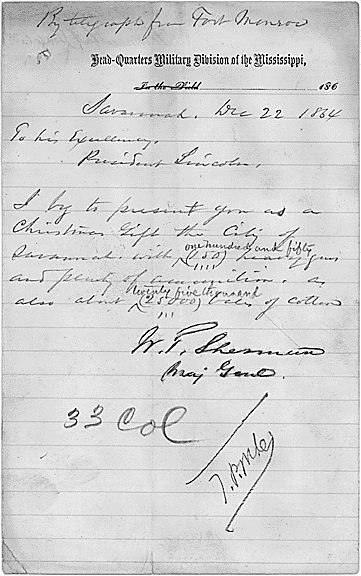 By telegraph from Fort Monroe
Head-Quarters Military Division of the Mississippi,
In the Field 186
Savannah, Dec 22 1864
To his Excellency,
President Lincoln,
I beg to present you as a
Christmas Gift the City of
one hundred and fifty
Savannah with (150) heavy guns
and plenty of ammunition. as
twenty five thousand
also about (25000) bales of cotton
W. T. Sherman
Maj Genl.
33 Col